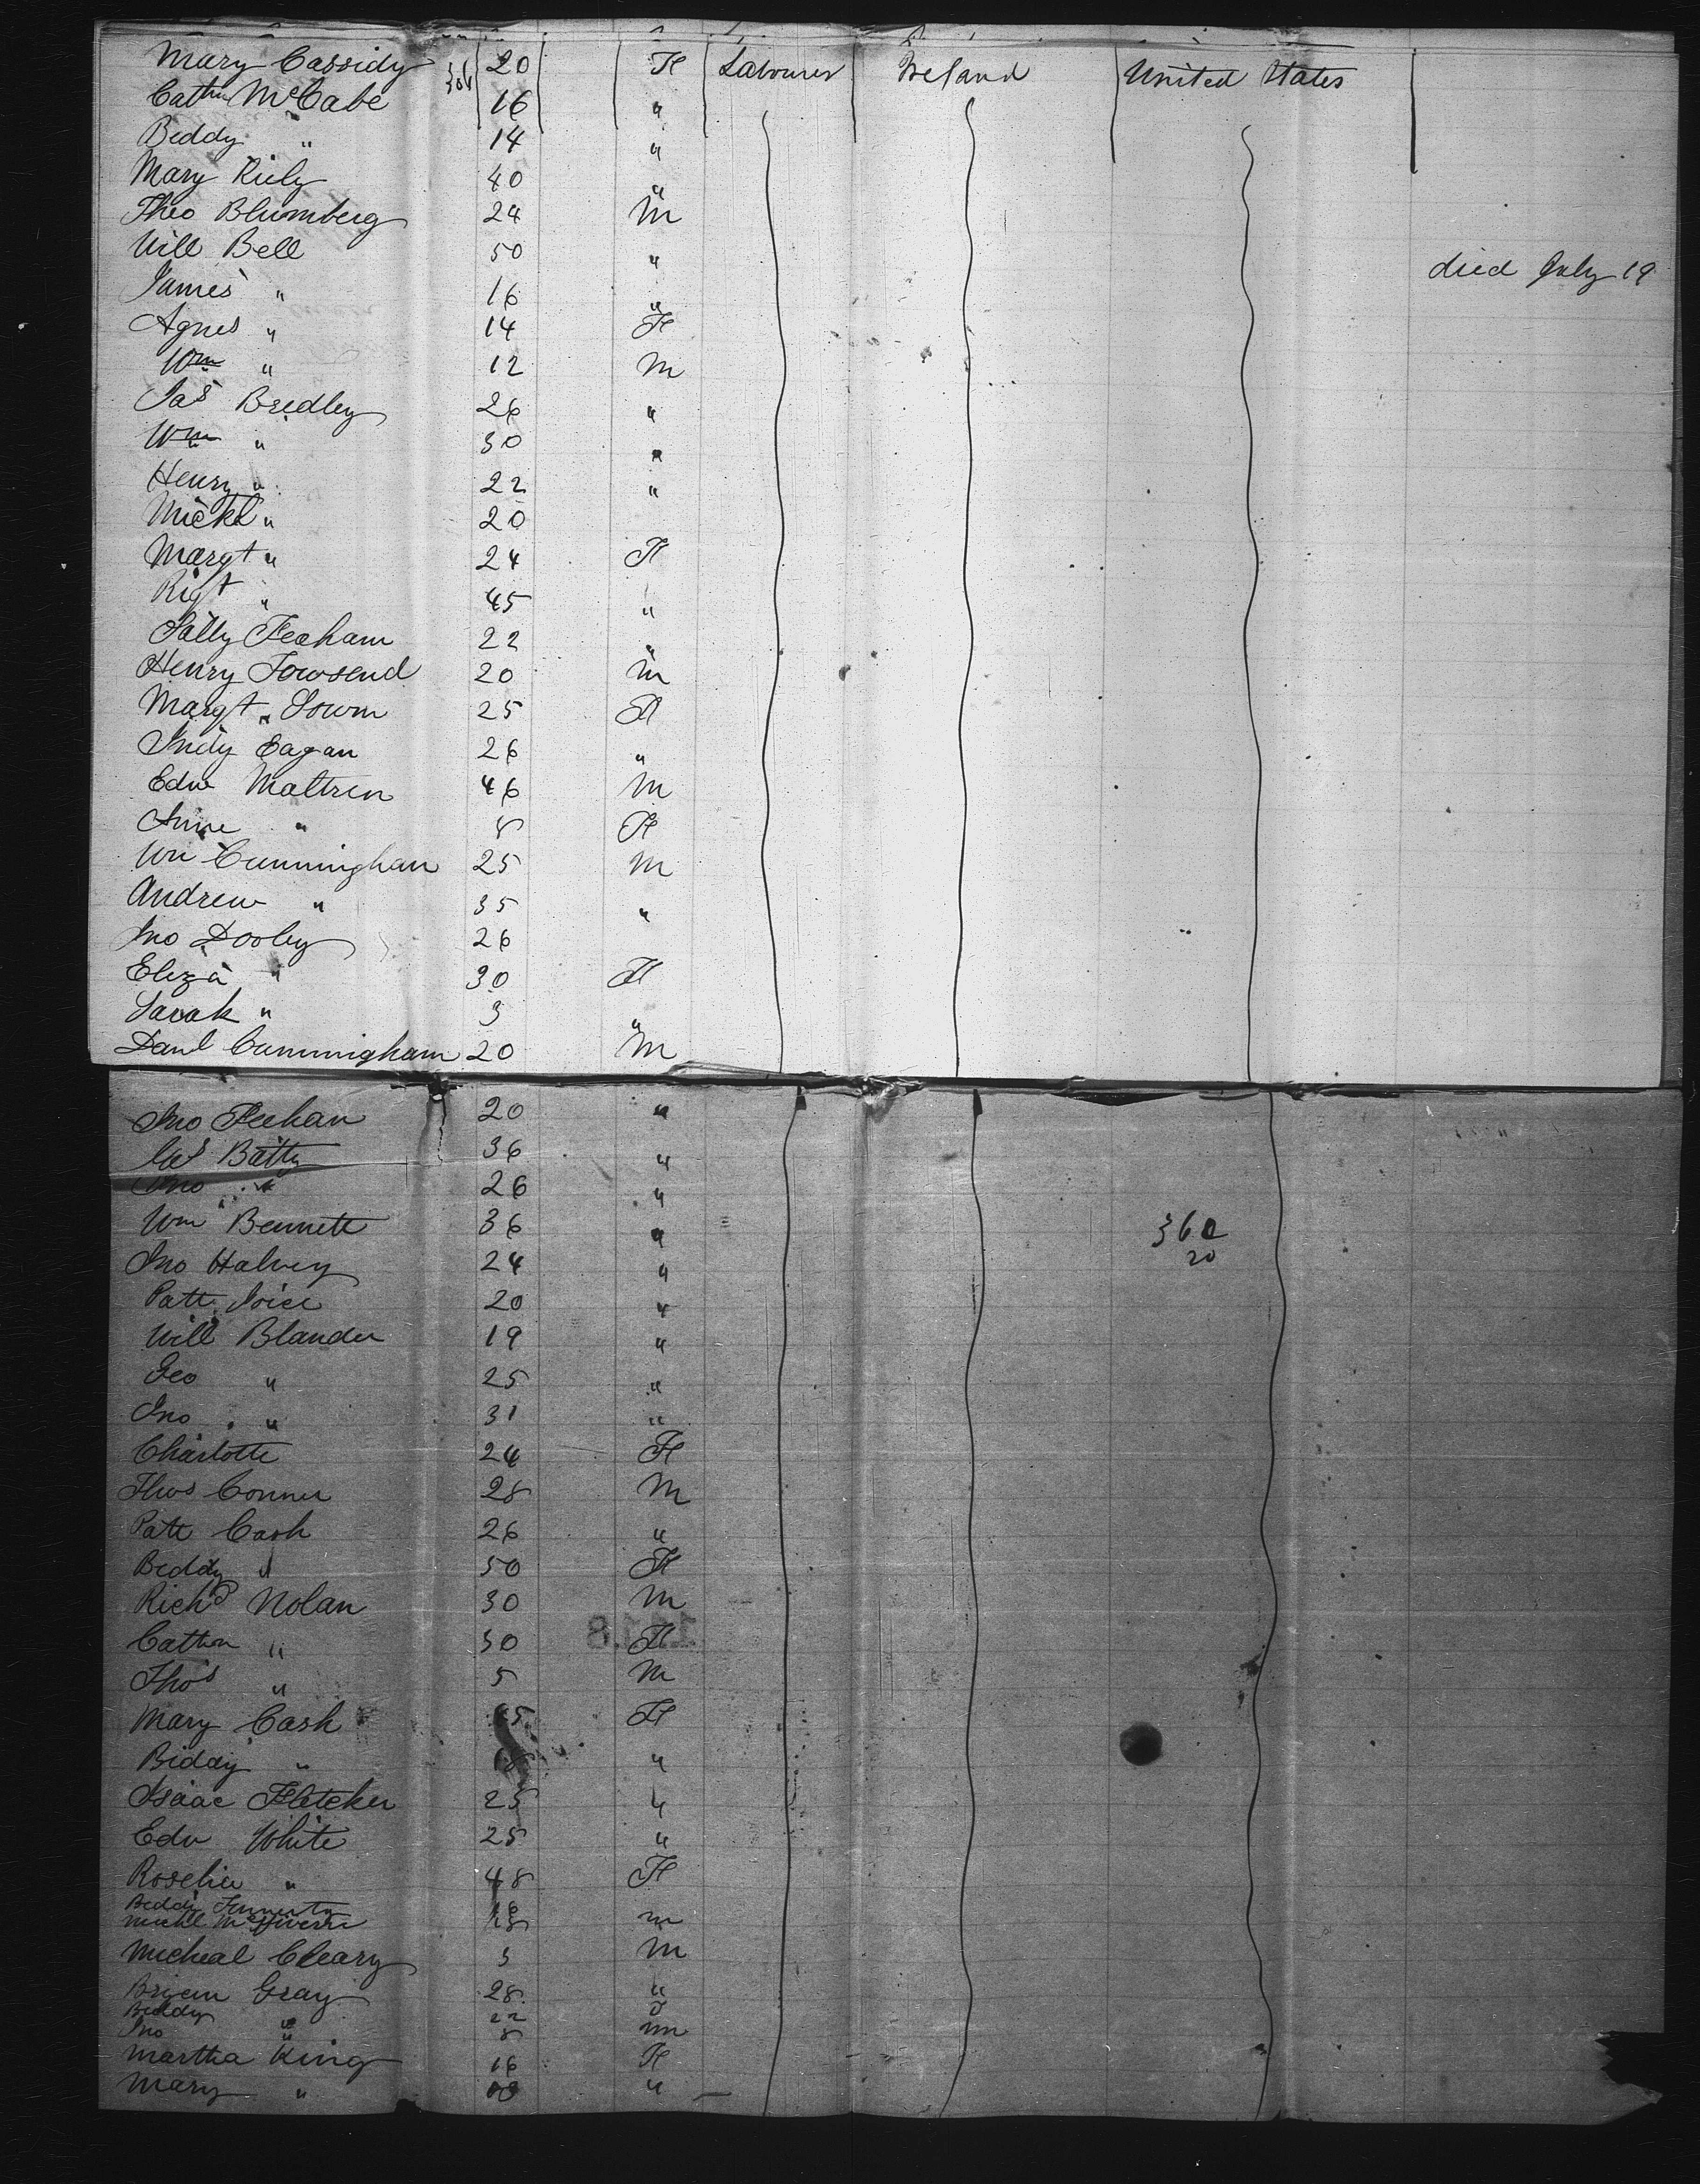 Mary Cassidy 20 F Labourer Ireland United States
Cathn McCabe 16 "
Beddy " 14 "
Mary Riely 40 "
Theo Blumberg 24 M
Will Bell 50 " died July 19
James " 16 "
Agnes " 14 F
Wm " 12 M
Jas Bredley 26 "
Wm " 30 "
Henry " 22 "
Michl " 20
Margt " 24 F
" 45 "
Sally Feaham 22 "
Henry Towsend 20 M
Margt " 25 F
Judy Eagan 26 "
Edw Maltren 46 M
Anne " 8 F
Wm Cunningham 25 M
Andrew " 35 "
Jno Dooley 26
Eliza " 30 F
Sarah " 3 "
Danl Cunningham 20 M
Jno Feehan 20 "
Batty 36 "
Jno " 26 "
Wm Bennett 36 " 362
20
Jno Halvey 24 "
Patt Joice 20 "
Will Blander 19 "
Geo " 25 "
Jno " 31 "
Charlotte 24 F
Thos Conner 28 M
Patt Cash 26 "
Beddy " 50 F
Richd Nolan 30 M
Cathn " 30 F
Thos " 5 M
Mary Cash F
Biddy " 18 "
Isaac Fletcher 25 "
Edw White 25 "
Roselia " 48 F
Beddy
Michl 18 m
Micheal Cleary 3 M
Bryen Gray 28 "
Beddy " 22
Jno " 8 m
Martha King 16 F
Mary " "